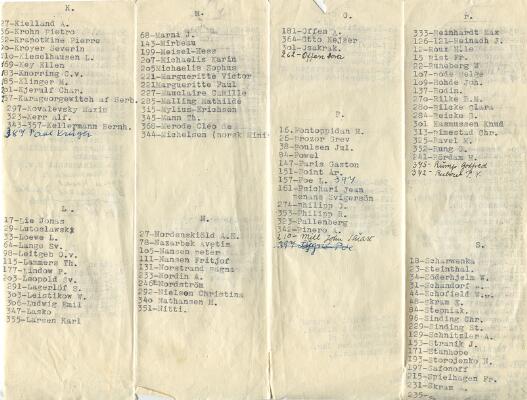 K.
27-Kielland A.
36-Krohn Pietro
52-Krapotkine Pierre
90-Kroyer Severin
210-Kieselhausen L.
169-Key Ellen
183-Knorring O.v.
185-Klinger M.
201-Kjerulf Char.
237-Karageorgewitch af Serb.
297-Kovalevsky Maxis
323-Kerr Alf.
343-357-Kellermann Bernh.
387 Paul Krüger
L.
17-Lie Jonas
29-Lutoslawski
33-Loewe L.
64-Lange Sv.
98-Leitgeb O.v.
115-Lammers Th.
177-Lindow P.
203-Leopold Sv.
291-Lagerlöf S.
303-Leistikow W.
306-Ludwig Emil
347-Lasko
355-Larsen Karl
M.
68-Marni J.
143-Mirbeau
199-Meisel-Hess
207-Michaelis Karin
205Michaelis Sophus
221-Margueritte Victor
221Margueritte Paul
227-Mauclaire Camille
285-Malling Mathilde
315-Mylius-Erichson
345-Mann Th.
368-Merode Cléo de
344-Michelsen (norsk Mini
N.
27-Nordenskiöld A.E.
78-Nazarbek Avetim
105-Hansen Peter
111-Nansen Fritjof
131-Norstrand Magna
233-Nordin A.
246-Nordström
292-Nielsen Christina
340 Nathansen M.
351-Nitti.
O.
181-Offen A.
364-Otto Kejser
301-Osakrak.
262-Offen Dora
P.
16.Pontoppidan H.
25-Prozor Grev
38-Poulsen Jul.
84-Powel
147-Paris Gaston
151-Point Ar.
157-Poe L. 394
161-Psichari Jean
Renans Svigersön
274-Philipp J.
353-Philipp R.
323-Pallenberg
342-Pinero A.
210- Mill John Stuart
R.
333-Reinhardt Max
126-121-Reinach J.
12-Roux M.lle
15 Rist Fr.
22-Runeberg W
107-Rode Helge
109-Rohde Joh.
20-Rodin.
270-Rilke R.M.
280-Rilcke Clara
284-Reicke G.
301 Rasmussen Knud
313-Rimestad Chr.
325-Ravel M.
332-Rung O.
241-Rördam H.
S.
18-Scharwenka
23-Steinthal.
34-Söderhjelm W.
31-Schandorf S.
44-Schofield W.
48-Skram E.
94-Stepniak.
96-Sinding Chr.
229-Sinding St.
129-Schnitzler A.
153-Stranik J.
171-Stanhope
193-Storojenko N.
197-Safonoff
215-Spielhagen Fr.
231-Skram A.
235-